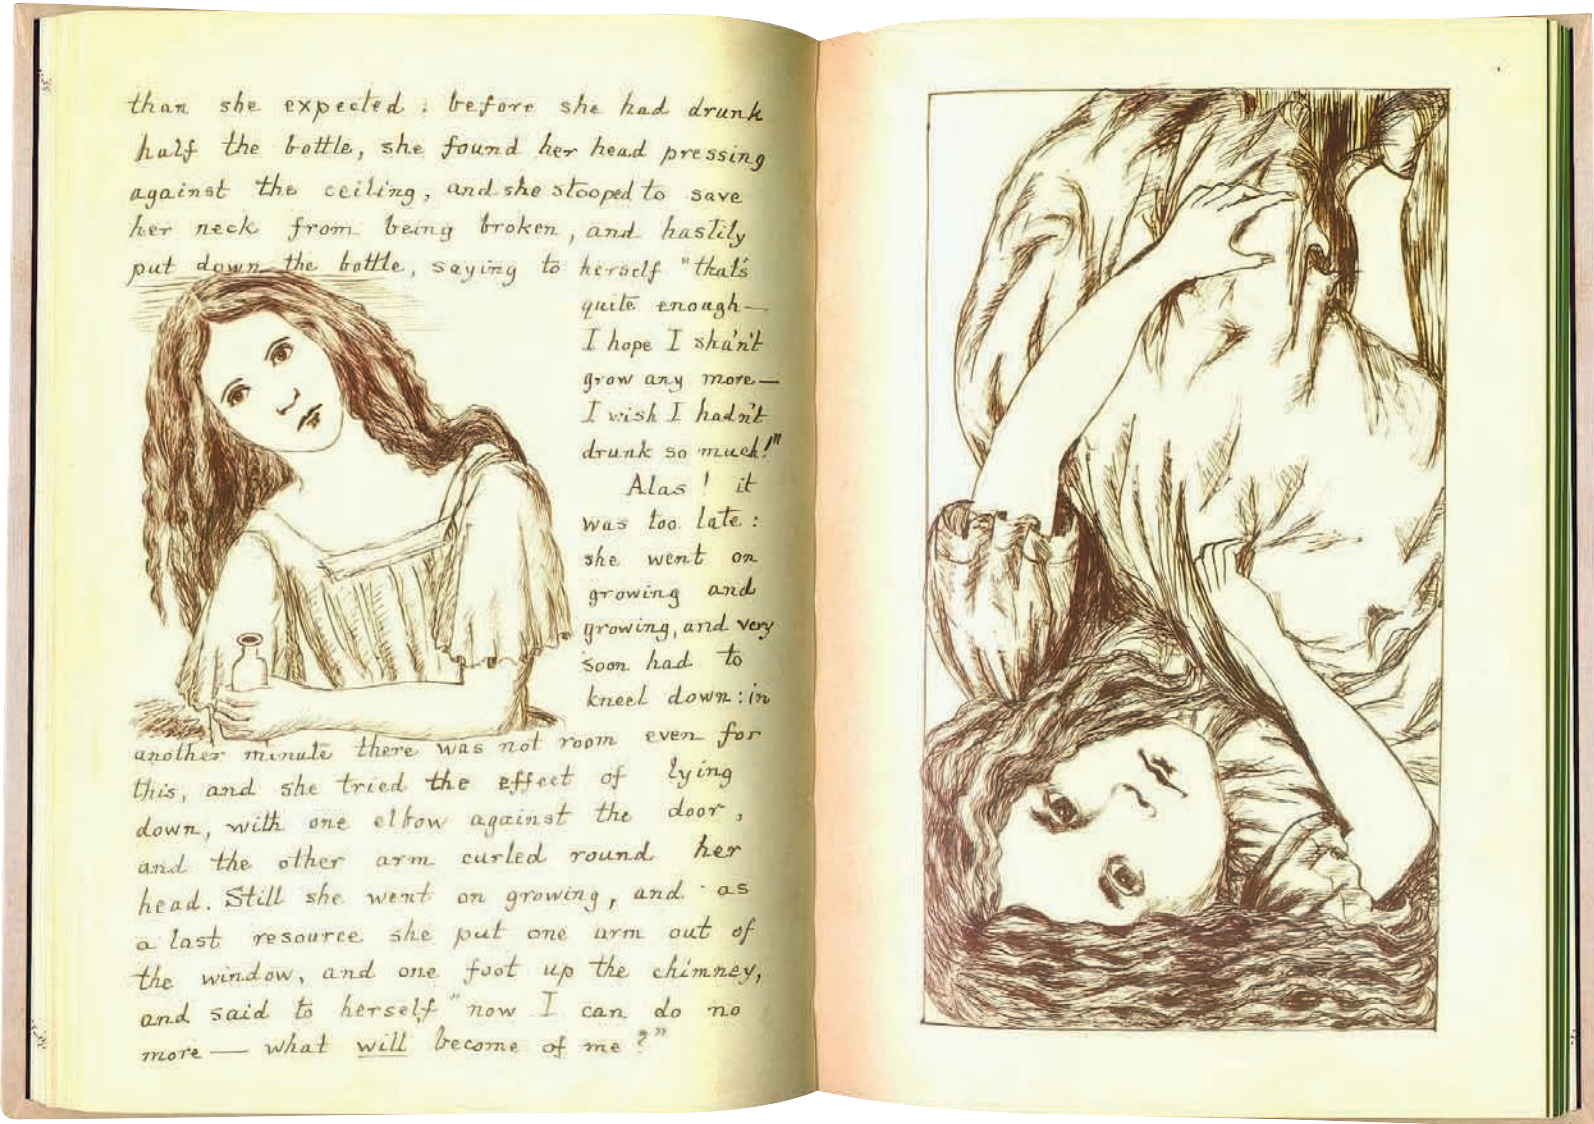 than she expected : before she had drunk
half the bottle, she found her head pressing
against the ceiling, and she stooped to save
her neck from being broken, and hastily
put down the bottle, saying to herself "that's
quite enough—
I hope I sha'n't
grow any more—
I wish I hadn't
drunk so much!"
Alas! it
was too late :
she went on
growing and
growing, and very
soon had to
kneel down : in
another minute there was not room even for
this, and she tried the effect of lying
down, with one elbow against the door,
and the other arm curled round her
head. Still she went on growing, and as
a last resource she put one arm out of
the window, and one foot up the chimney,
and said to herself "now I can do no
more — what will become of me?"